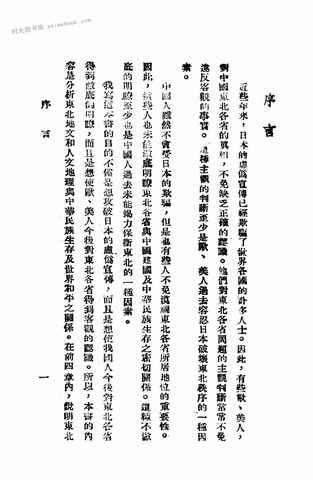 序言
近些年來，日本的虛僞宣傳已經欺騙了世界各國的許多人士。因此，有些歐、美人，
對中國東北各省的眞相，不免缺乏正確的認識。他們對東北各省問題的主觀判斷常常不免
違反客觀的事實。這種主觀的判斷至少是歐、美人過去容忍日本破壞東北秩序的一種因
素。
中國人雖然不會受日本的欺騙，但是也有些人不免漠視東北各省所居地位的重要性。
因此，這些人也未能澈底明瞭東北各省與中國建國及中華民族生存之密切關係。這種不澈
底的明瞭至少也是中國人過去未能竭力保衛東北的一種因素。
我寫這本書的目的不僅是想攻破日本的虛僞宣傳，而且是想使我國人今後對東北各省
得到澈底的明瞭，而且是想使歐、美人今後對東北各省得到客觀的認識。所以，本書的內
容是分析東北地文和人文地理與中華民族生存及世界和平之關係。在前四章內，說明東北
序言
一